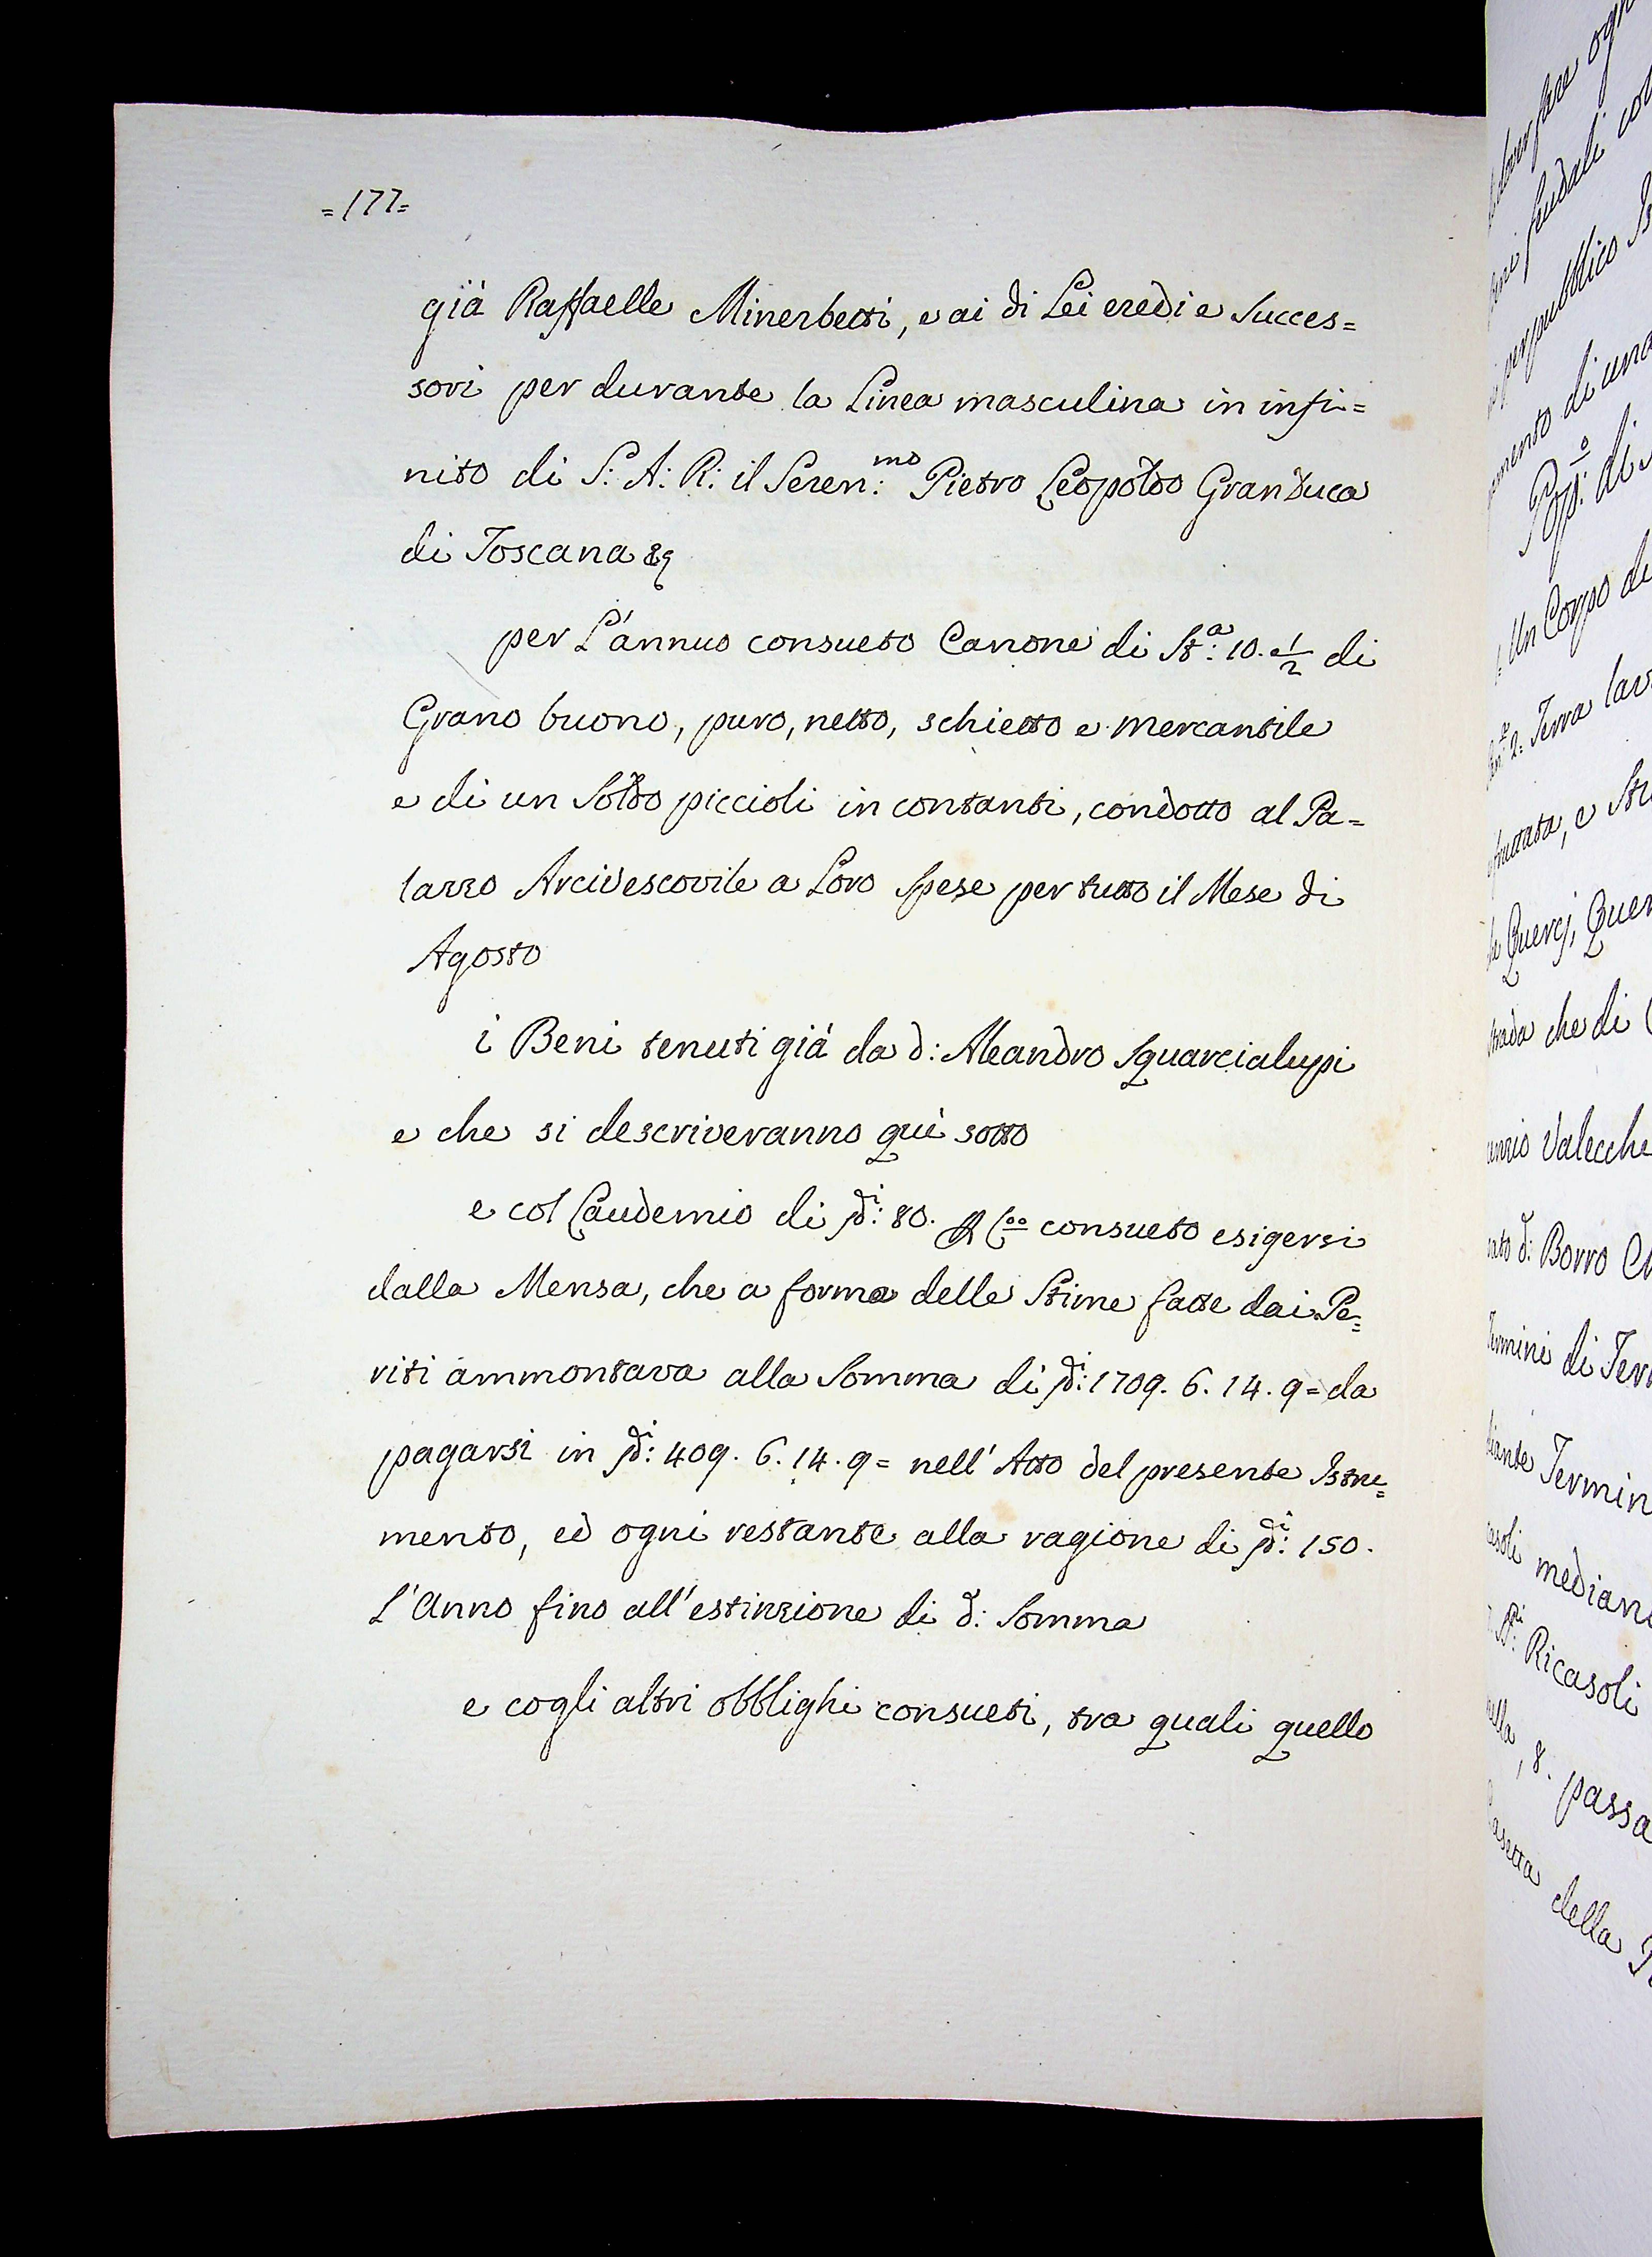 =177=
già Raffaelle Minerbetti, e ai di Lei eredi e Succes=
sori per durante la Linea masculina in infi=
nito di S: A: R: il Seren:mo Pietro Leopoldo Granduca
di Toscana &c
per L'annuo consueto Canone di St:a 10. e 1/2 di
Grano buono, puro, netto, schietto e mercantile
e di un Soldo piccioli in contanti, condotto al Pa=
lazzo Arcivescovile a Loro Spese per tutto il Mese di
Agosto
i Beni tenuti già da d: Aleandro Squarcialupi
e che si descriveranno quì sotto
e col Laudemio di di: 80. consueto esigersi
dalla Mensa, che a forma delle Stime fatte dai Pe=
riti ammontava alla Somma di di: 1709. 6. 14. 9= da
pagarsi in di: 409. 6. 14. 9= nell'Atto del presente Istru=
mento, ed ogni restante alla ragione di di: 150.
L'Anno fino all'estinzione di d: Somma
e cogli altri obblighi consueti, tra quali quello
feudali
di una
Un Corpo di
Terra
Querci,
strada che di
Valecche
Borro
Termini di
Ricasoli
passa
della